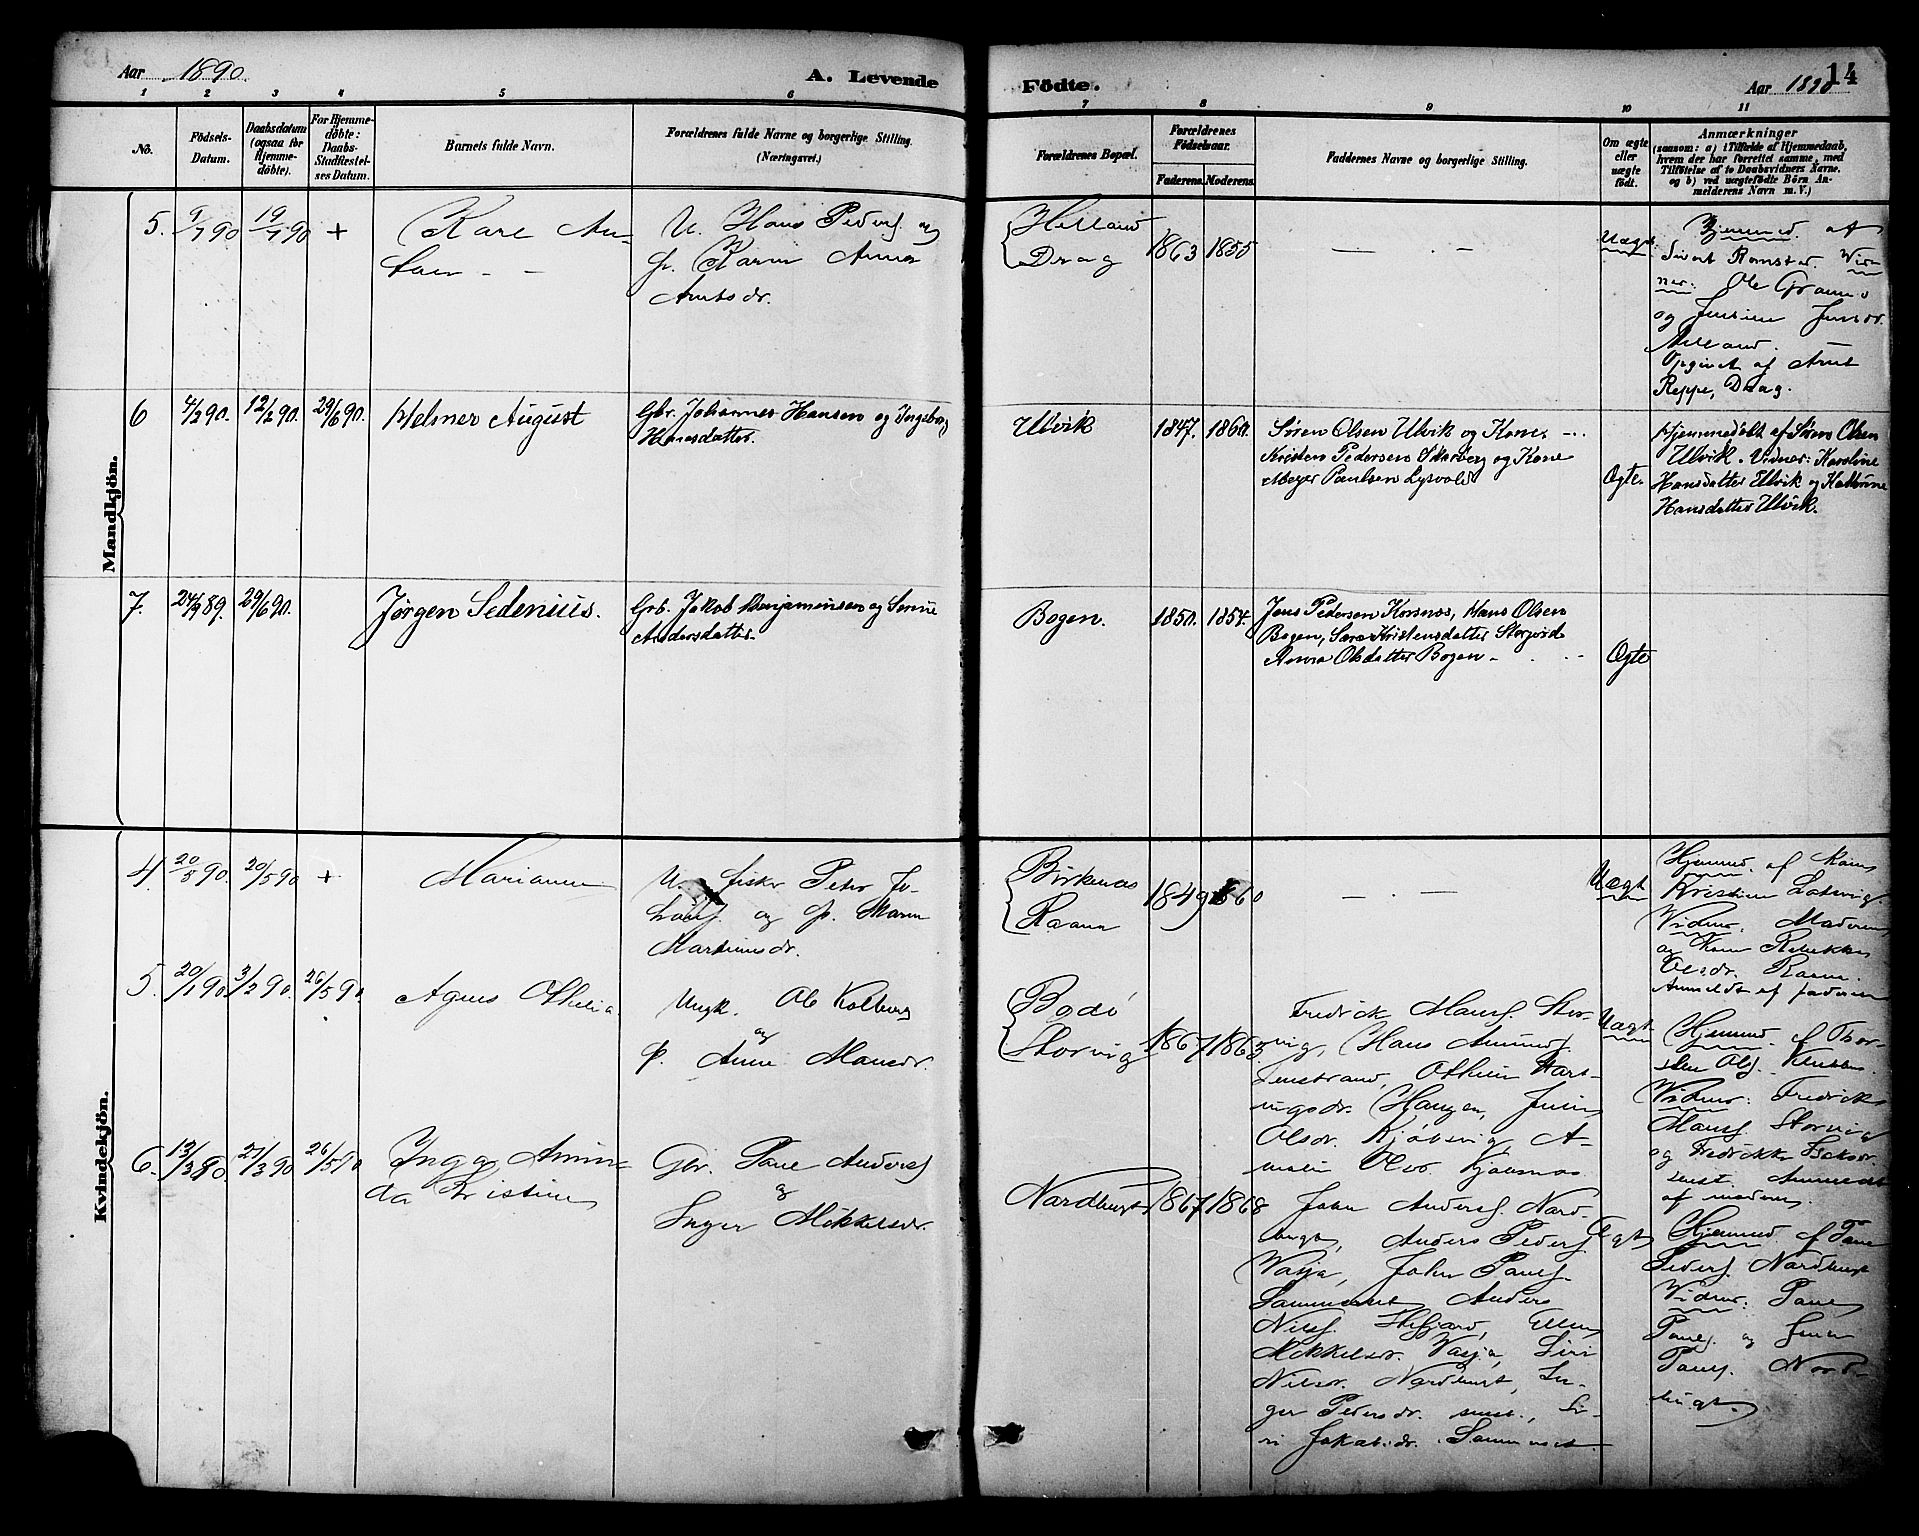 Aar 1890.
A. Levende
Födte.
Aar 1890
14
1 2 3 4 5 6 7 8 9 10 11
No.
Födsels-
Datum.
Daabsdatum
(ogsaa for
Hjemme-
döbte).
For Hjemme-
döbte:
Daabs-
Stadfæstel-
ses Datum.
Barnets fulde Navn.
Forældrenes fulde Navne og borgerlige Stilling.
(Næringsvei.)
Forældrenes Bopæl.
Forældrenes
Födselsaar.
Faderens. Moderens.
Faddernes Navne og borgerlige Stilling.
Om ægte
eller
uægte
födt.
Anmærkninger
(saasom: a) i Tilfælde af Hjemmedaab,
hvem der har forrettet samme, med
Tilföielse af to Daabsvidners Navne.
og b) ved uægtefödte Börn An-
melderens Navn m. V.)
Mandkjön.
5. 9/7 90 19/7 90 +
Karl
U. Hans Peders. og
p. Karen Anna
Amtsdr.
Helland
Drag
1863 1855
— . —
Uægt.
Hjemmed. af
Sivert Ramstad. Vid-
ner: Ole
og Jensine Jensdr.
Helland.
Opgivet af Arnt
Reppe, Drag.
6 4/2 90. 12/2 90. 29/6 90.
Helmer August
Gbr. Johannes Hansen og Ingeborg
Hansdatter.
Ulvik
1847. 1860.
Søren Olsen Ulvik og Kone -..
Kristen Pedersen Skarberg og Kone
Meyer Paulsen Lysvold
Ægte.
Hjemmedøbt af Søren Olsen
Ulvik. Vidner: Karoline
Hansdatter Ulvik og Kathrine
Hansdatter Ulvik.
7. 24/9 89. 29/6 90.
Jørgen Sedenius.
Grb. Jakob Benjaminsen og Sørine
Andersdatter.
Bogen.
1850. 1854.
Jens Pedersen Korsnæs, Hans Olsen
Bogen, Sara Kristensdatter Storjord
Anna Olsdatter Bogen - . . . -
Ægte
Kvindekjön.
4. 20/5 90. 20/5 90 +
Marianna
U. fisker Peter
og p. Maren
Martinusdr.
Birkenæs
Raana
1849 1860
— . —
Uægt
Hjemmed. af Kone
Kristine
Vidner: Moderen
og Kone Rebekka
Olsdr. Raana.
Anmeldt af faderen
5. 20/1 90. 3/2 90. 26/5 90
Agnes Othelia.
Ungk. Ole Kolberg
og
p. Anne Mansdr.
Bodö
Storvig
1867 1863
Fredrik Mans. Stor-
vig, Hans Amund.
Fenstrand, Othelie Hart-
vigsdr. Haugen, Jensine
Olsdr. Kjöbsvig, A-
malie Kjöbsnæs
Uægt
Hjemmed. af Thor-
sten Ols.
Vidner: Fredrik
Mans. Storvig
og Fredrikke
Anmeldt
af moderen.
6. 13/3 90. 21/3 90 26/5 90
Inga Amin-
da Kristine
Gbr. Paul Anders.
og
Inger Mikkelsdr.
Nordbugt
1867 1868
John Anders. Nord-
bugt, Anders Peders.
Vasja, John Pauls.
Sammenset Anders
Nils. Stefjord, Ellen
Mikkelsdr. Vasja, Siri
Nilsdr. Nordbugt, In-
ger Pedersdr. smst., Si-
ri Jakobsdr. Sammenset
Ægt
Hjemmed. af Paul
Peders. Nordbugt
Vidner: Paul
Pauls. og
Pauls. Nord-
bugt.